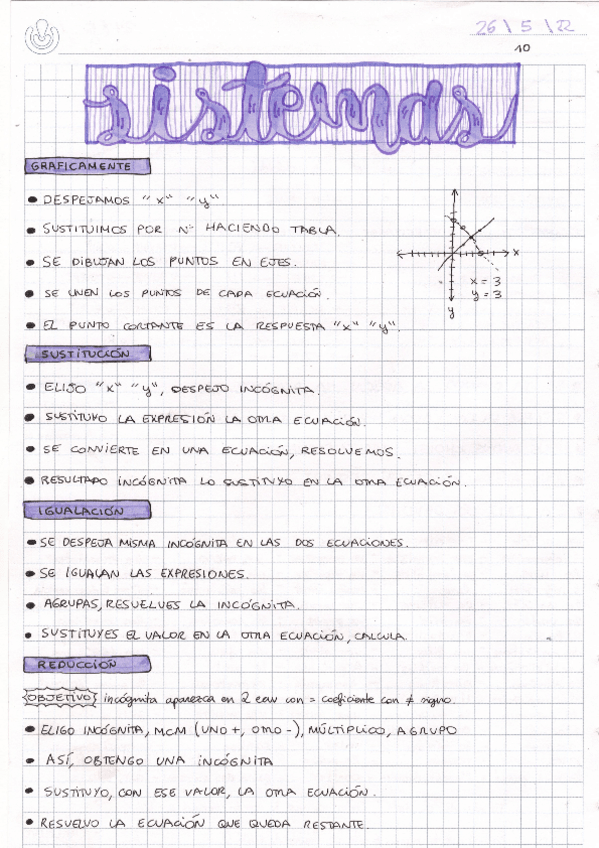 26 \ 5 \ 22
10
sistemas
GRAFICAMENTE
• DESPEJAMOS "x" "y"
• SUSTITUIMOS POR Nº HACIENDO TABLA.
• SE DIBUJAN LOS PUNTOS EN EJES.
• SE UNEN LOS PUNTOS DE CADA ECUACIÓN.
• EL PUNTO CORTANTE ES LA RESPUESTA "x" "y".
x
x = 3
y = 3
y
SUSTITUCIÓN
• ELIJO "x" "y", DESPEJO INCÓGNITA.
• SUSTITUYO LA EXPRESIÓN LA OTRA ECUACIÓN.
• SE CONVIERTE EN UNA ECUACIÓN, RESOLVEMOS.
• RESULTADO INCÓGNITA LO SUSTITUYO EN LA OTRA ECUACIÓN.
IGUALACIÓN
• SE DESPEJA MISMA INCÓGNITA EN LAS DOS ECUACIONES.
• SE IGUALAN LAS EXPRESIONES.
• AGRUPAS, RESUELVES LA INCÓGNITA.
• SUSTITUYES EL VALOR EN LA OTRA ECUACIÓN, CALCULA.
REDUCCIÓN
OBJETIVO incógnita aparezca en 2 ecuv con = coeficiente con ≠ signo.
• ELIGO INCÓGNITA, MCM (UNO +, OTRO -), MÚLTIPLICO, AGRUPO
• ASÍ, OBTENGO UNA INCÓGNITA
• SUSTITUYO, CON ESE VALOR, LA OTRA ECUACIÓN.
• RESUELVO LA ECUACIÓN QUE QUEDA RESTANTE.